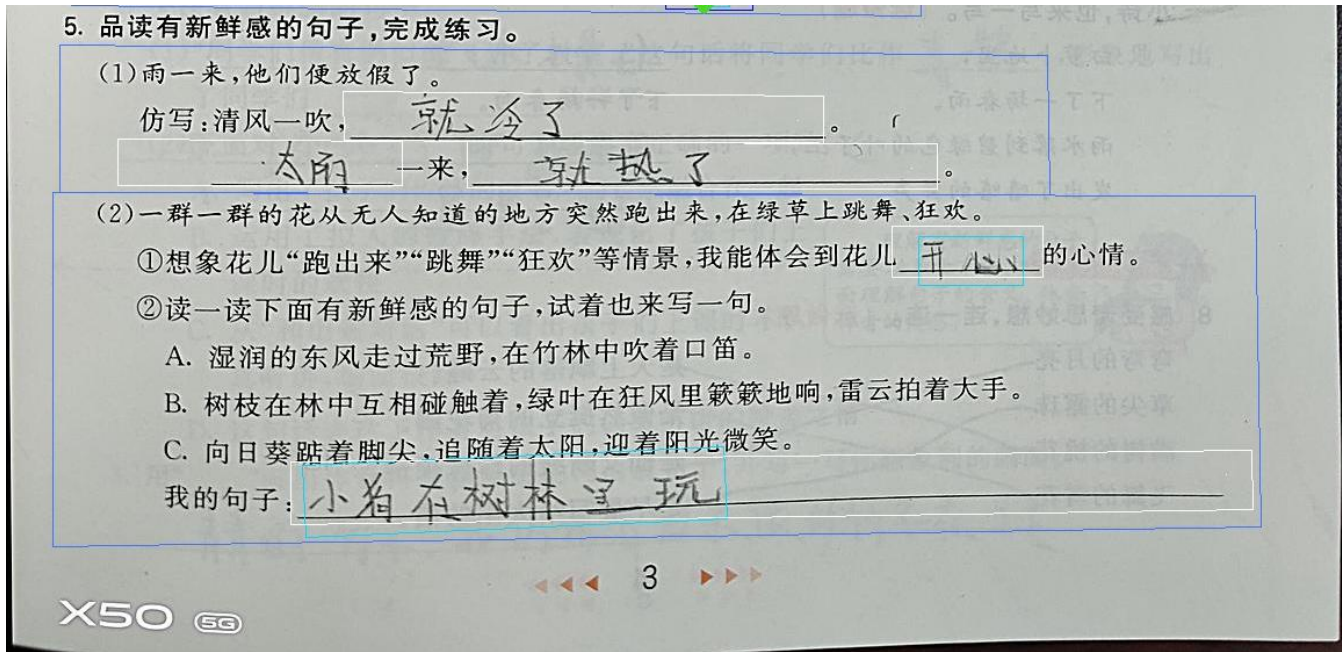 5. 品读有新鲜感的句子,完成练习。
(1)雨一来,他们便放假了。
仿写:清风一吹,就冷了。
太阳一来,就热了。
(2)一群一群的花从无人知道的地方突然跑出来,在绿草上跳舞、狂欢。
①想象花儿“跑出来”“跳舞”“狂欢”等情景,我能体会到花儿开心的心情。
②读一读下面有新鲜感的句子,试着也来写一句。
A. 湿润的东风走过荒野,在竹林中吹着口笛。
B. 树枝在林中互相碰触着,绿叶在狂风里簌簌地响,雷云拍着大手。
C. 向日葵踮着脚尖,追随着太阳,迎着阳光微笑。
我的句子:小 在树林 玩
3
X50 5G